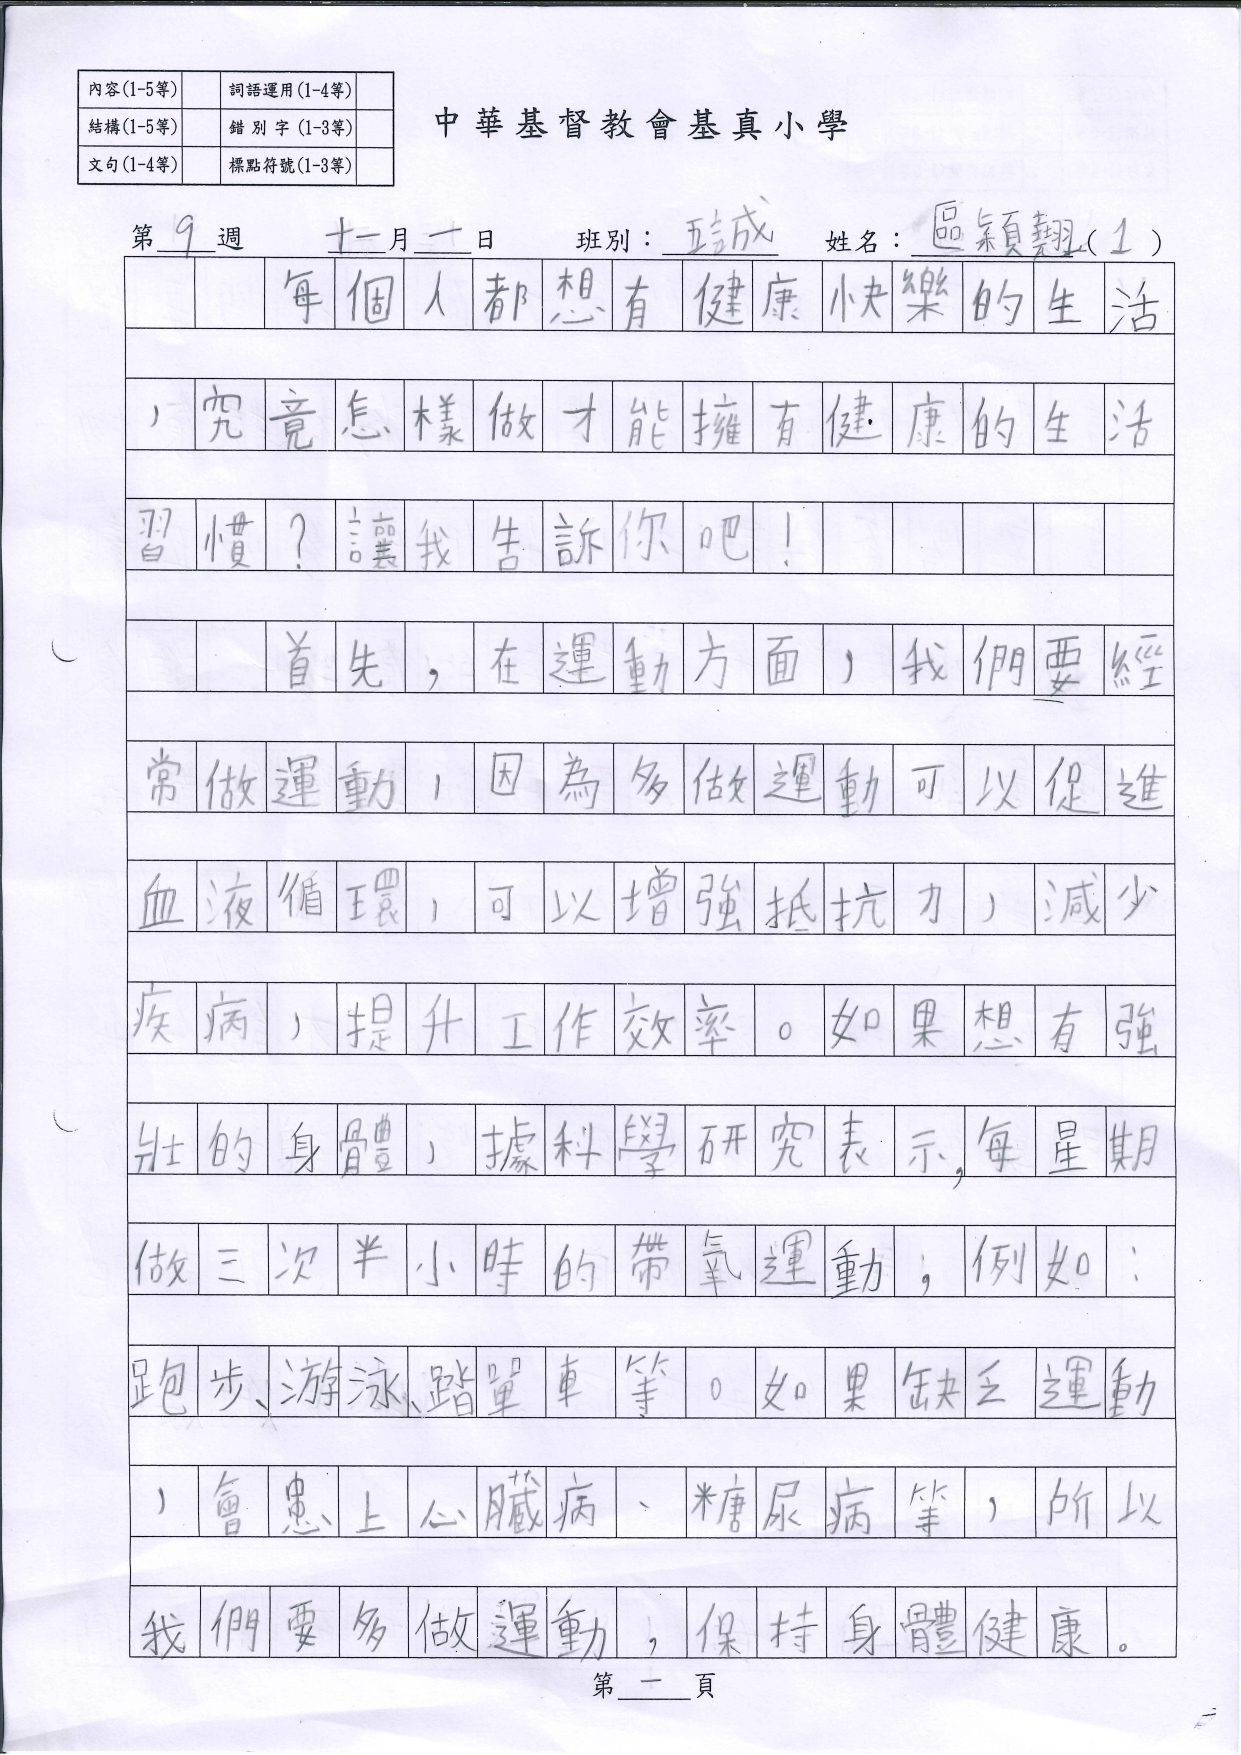 內容(1-5等) 詞語運用(1-4等)
結構(1-5等) 錯別字(1-3等)
文句(1-4等) 標點符號(1-3等)
中華基督教會基真小學
第 9 週 十一月 十 日 班別：五誠 姓名：區穎翹(1)
每個人都想有健康快樂的生活
，究竟怎樣做才能擁有健康的生活
習慣？讓我告訴你吧！
首先，在運動方面，我們要經
常做運動，因為多做運動可以促進
血液循環，可以增強抵抗力，減少
疾病，提升工作效率。如果想有強
壯的身體，據科學研究表示，每星期
做三次半小時的帶氧運動，例如：
跑步、游泳、踏單車等。如果缺乏運動
，會患上心臟病、糖尿病等，所以
我們要多做運動，保持身體健康。
第 一 頁